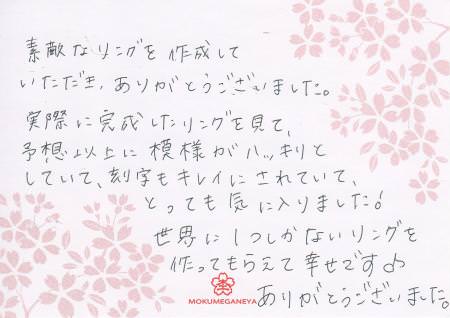 素敵なリングを作成して
いただき、ありがとうございました。
実際に完成したリングを見て、
予想以上に模様がハッキリと
していて、刻字もキレイにされていて、
とっても気に入りました!
世界に1つしかないリングを
作ってもらえて幸せです♪
MOKUMEGANEYA
ありがとうございました。